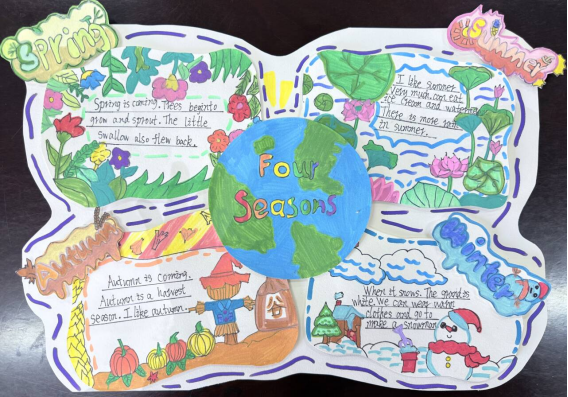 Spring
Spring is coming. Trees begin to
grow and sprout. The little
swallow also flew back.
Summer
I like summer
very much. can eat
ice cream and
There is more
in summer.
Four
Seasons
Autumn
Autumn is coming.
Autumn is a harvest
season. I like autumn.
Winter
When it snows. The
white. We can wear
clothes and go to
make a snowman